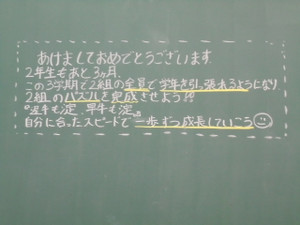 あけましておめでとうございます.
2年生もあと3ヶ月.
この3学期で2組の全員で学年を引っ張れるようになり
2組のパズルを完成させよう!!
"遅牛も淀、早牛も淀"
自分に合ったスピードで一歩ずつ成長していこう